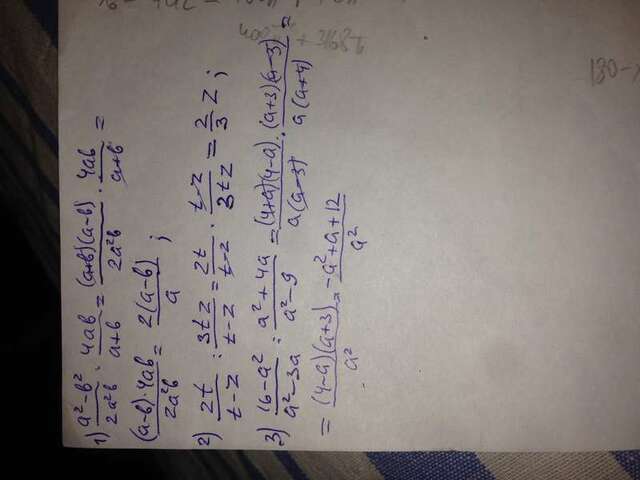 1) (a²-b²)/(2a²b) · (4ab)/(a+b) = ((a+b)(a-b))/(2a²b) · (4ab)/(a+b) =
((a-b)·4ab)/(2a²b) = (2(a-b))/a ;
2) (2t)/(t-z) : (3tz)/(t-z) = (2t)/(t-z) · (t-z)/(3tz) = 2/3 z ;
3) (16-a²)/(a²-3a) : (a²+4a)/(a²-9) = ((4+a)(4-a))/(a(a-3)) · ((a+3)(a-3))/(a(a+4)) =
= ((4-a)(a+3))/a² = (-a²+a+12)/a²